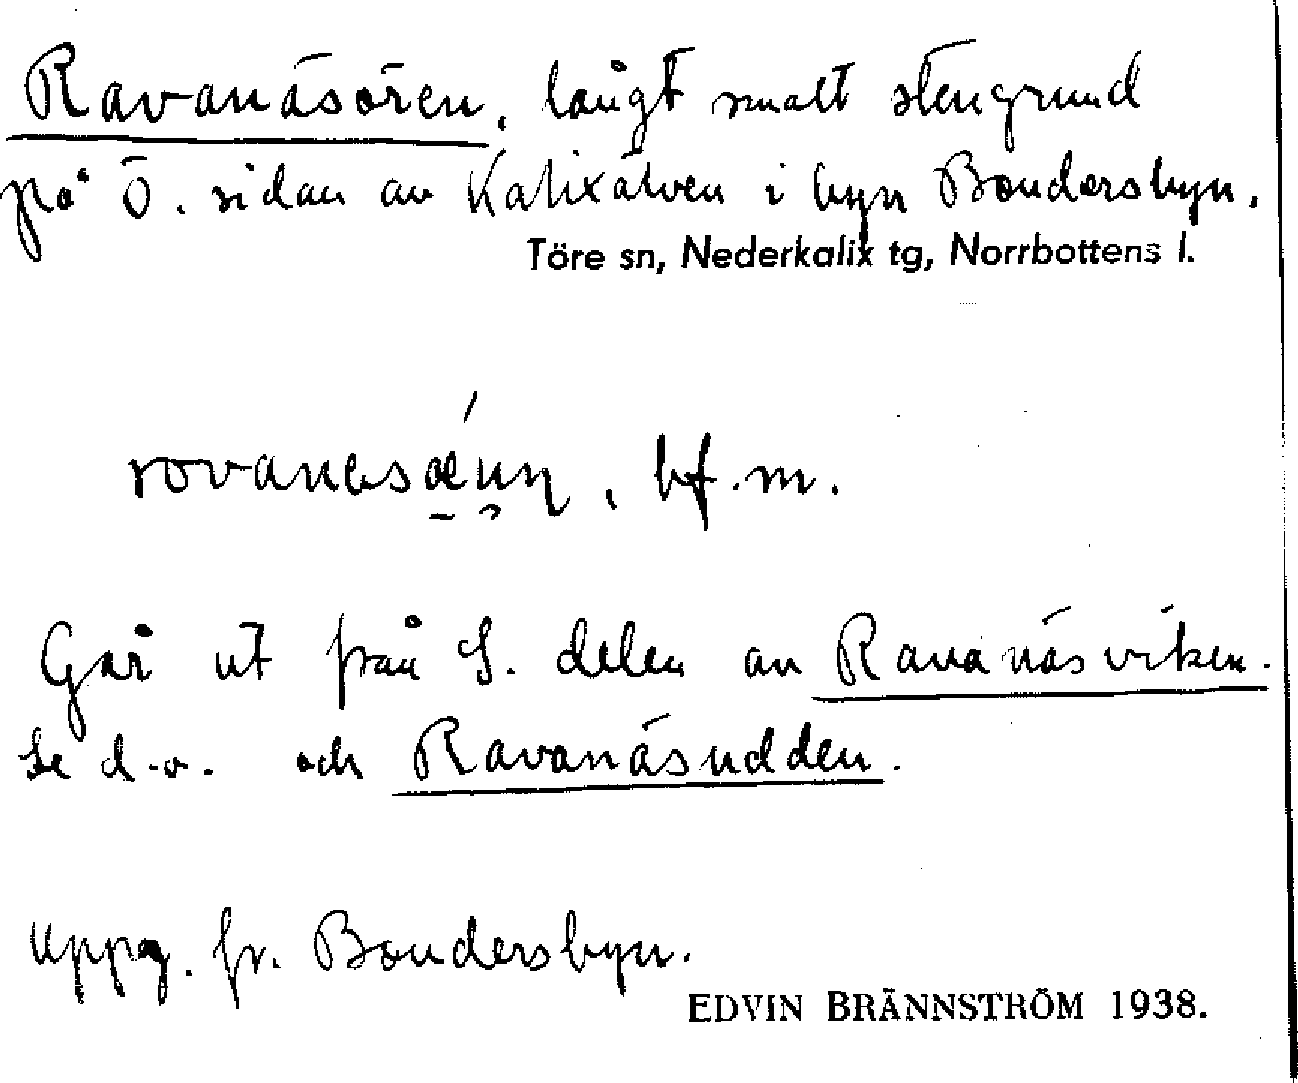 Ravanäsören, långt smalt stengrund
på Ö. sidan av Kalixälven i byn Bondersbyn.
Töre sn, Nederkalix tg, Norrbottens l.
bf. m.
Går ut från S. delen av Ravanäsviken.
Se d.o. och Ravanäsudden.
Uppg. fr. Bondersbyn.
EDVIN BRÄNNSTRÖM 1938.